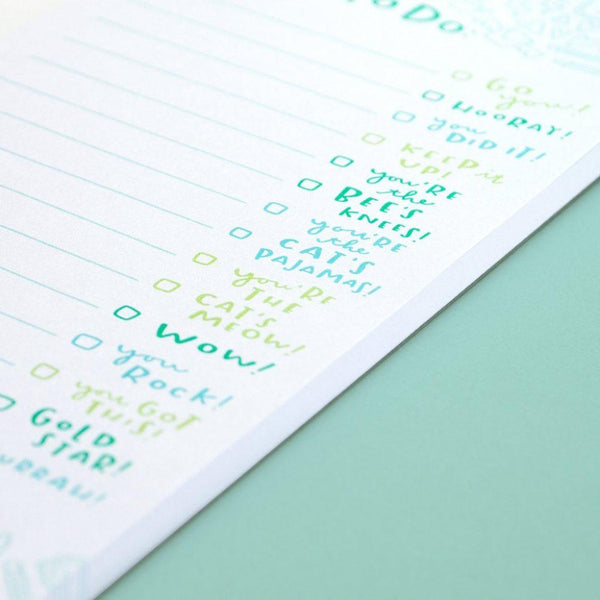 To Do
Go
you!
HOORAY!
you
DID IT!
KEEP it
UP!
you're
the
BEE'S
KNEES!
you're
the
CAT'S
PAJAMAS!
you're
THE
CAT'S
MEOW!
WOW!
you
ROCK!
you GOT
THIS!
GOLD
STAR!
URRAH!